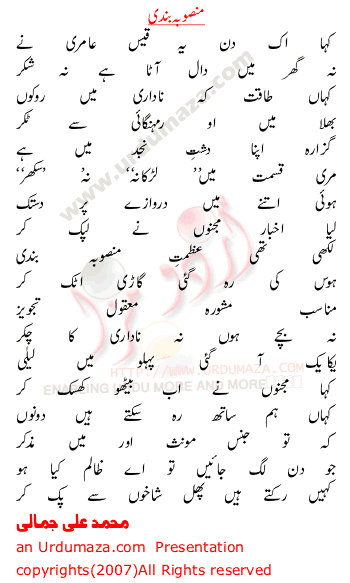 منصوبہ بندی
کہا اک دن یہ قیس عامری نے
نہ گھر میں دال آٹا ہے نہ شکر
کہاں طاقت کہ ناداری میں روکوں
بھلا میں او رمہنگائی سے ٹکر
گزارہ اپنا دشتِ نجد میں ہے
مری قسمت میں’’ لڑکانہ‘‘ نہ’ ’سکھر‘‘
ہوئی اتنے میں دروازے پر دستک
لیا اخبار مجنوں نے لپک کر
لکھی تھی عظمتِ منصوبہ بندی
ہوس کی رہ گئی گاڑی اٹک کر
مناسب مشورہ معقول تجویز
نہ بچے ہوں نہ ناداری کا چکر
یکایک آ گئی پہلو میں لیلٰی
کہا مجنوں نے اب بیٹھو کھسک کر
کہاں ہم ساتھ رہ سکتے ہیں دونوں
کہ تو جنس مونث اور میں مذکر
جو دن لگ جائیں تو اے ظالم کیا ہو
کہیں رکتے ہیں پھل شاخوں سے پک کر
محمد علی جمالی
an Urdumaza.com Presentation
copyrights(2007)All Rights Reserved
www.urdumaza.com
اردو مزا
HTTP://WWW.URDUMAZA.COM
ENABLING URDU AND MUCH MORE